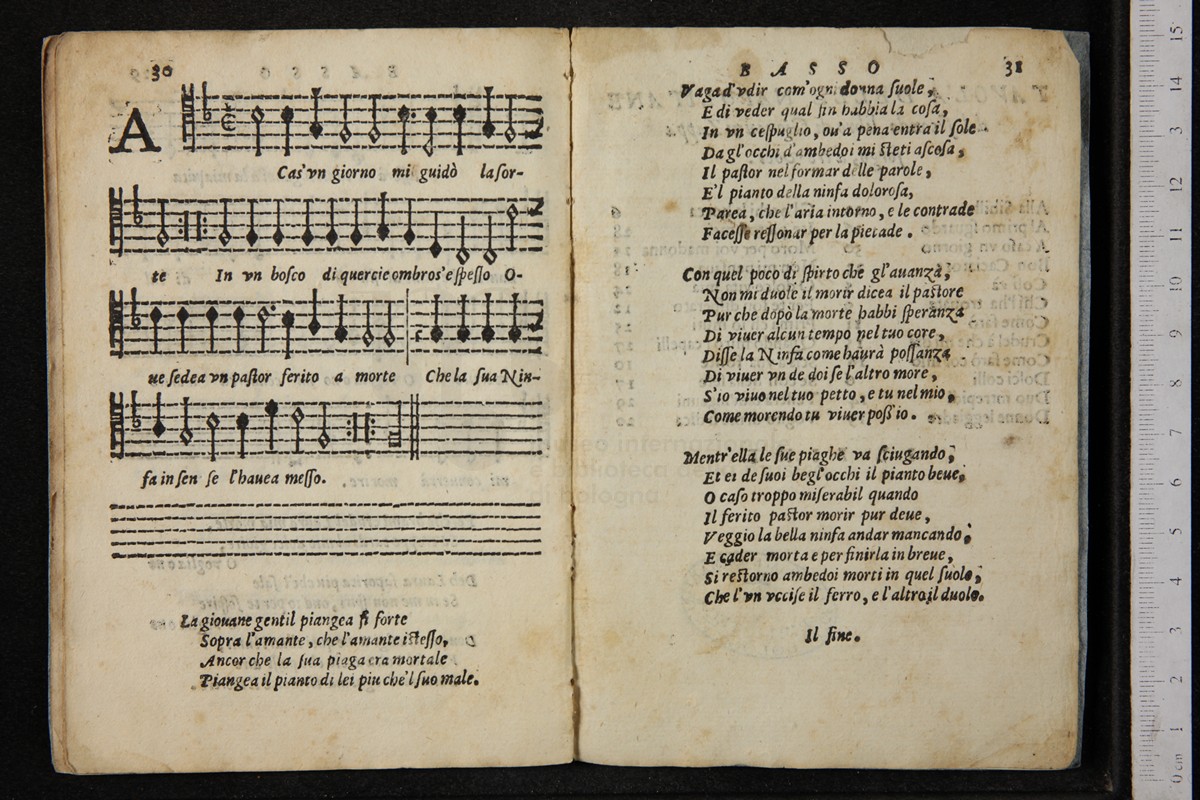 30
A
Cas'vn giorno mi guidò la sor-
te In vn bosco di quercie ombros'e spesso O-
ue sedea vn pastor ferito a morte Che la sua Nin-
fa in sen se l'hauea messo.
La giouane gentil piangea sì forte
Sopra l'amante, che l'amante istesso,
Ancor che la sua piaga era mortale
Piangea il pianto di lei piu che'l suo male.
BASSO
31
Vaga d'vdir com'ogni donna suole,
E di veder qual fin habbia la cosa,
In vn cespuglio, ou'a pena entra il sole
Da gl'occhi d'ambedoi mi steti ascosa,
Il pastor nel formar delle parole,
E'l pianto della ninfa dolorosa,
Parea, che l'aria intorno, e le contrade
Facesse ressonar per la pietade.
Con quel poco di spirto che gl'auanza,
Non mi duole il morir dicea il pastore
Pur che dopò la morte habbi speranza
Di viuer alcun tempo nel tuo core,
Disse la Ninfa come haurà possanza
Di viuer vn de doi se l'altro more,
S'io viuo nel tuo petto, e tu nel mio,
Come morendo tu viuer poss'io.
Mentr'ella le sue piaghe va sciugando,
Et ei de suoi begl'occhi il pianto beue,
O caso troppo miserabil quando
Il ferito pastor morir pur deue,
Veggio la bella ninfa andar mancando,
E cader morta e per finirla in breue,
Si restorno ambedoi morti in quel suolo,
Che l'vn vccise il ferro, e l'altro il duolo.
Il fine.